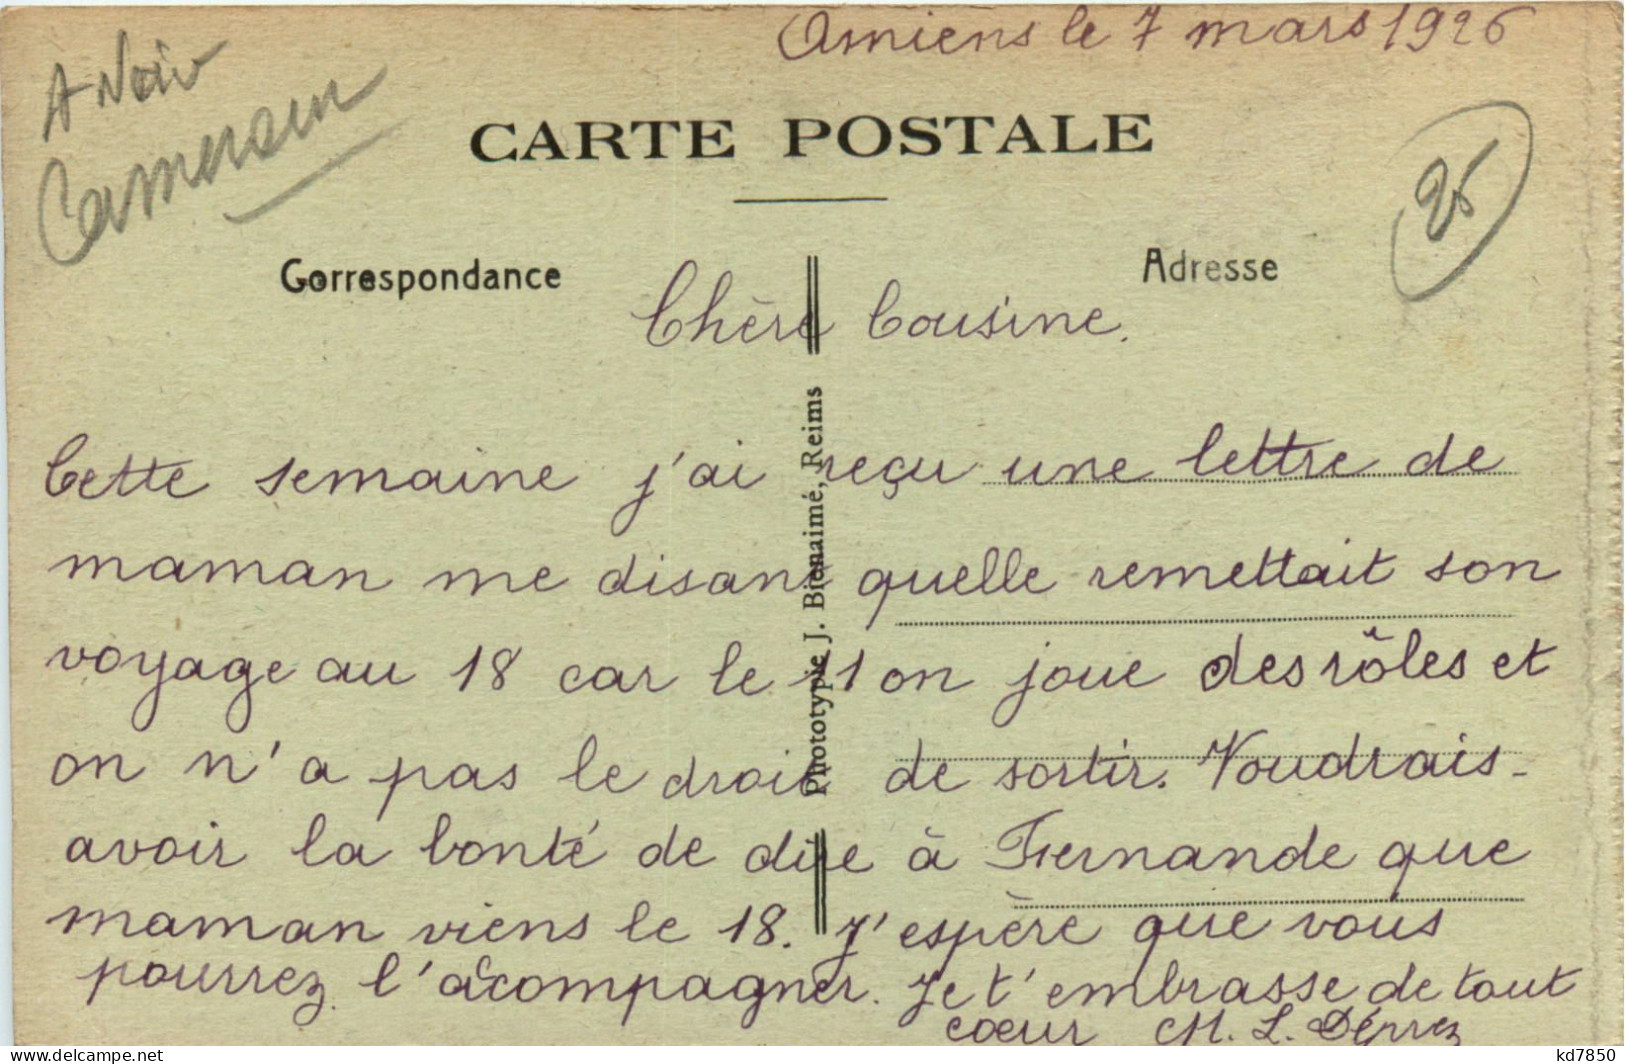 Amiens le 7 mars 1926
A Noir
CARTE POSTALE
25
Correspondance
Adresse
Chère Cousine.
Cette semaine j'ai reçu une lettre de
maman me disant quelle remettait son
voyage au 18 car le 11 on joue des rôles et
on n'a pas le droit de sortir. Voudrais-
avoir la bonté de dire à Fernande que
maman viens le 18. J'espère que vous
pourrez l'accompagner. Je t'embrasse de tout
coeur M. L. Déprez
Phototypie J. Bienaimé, Reims
www.delcampe.net
kd7850